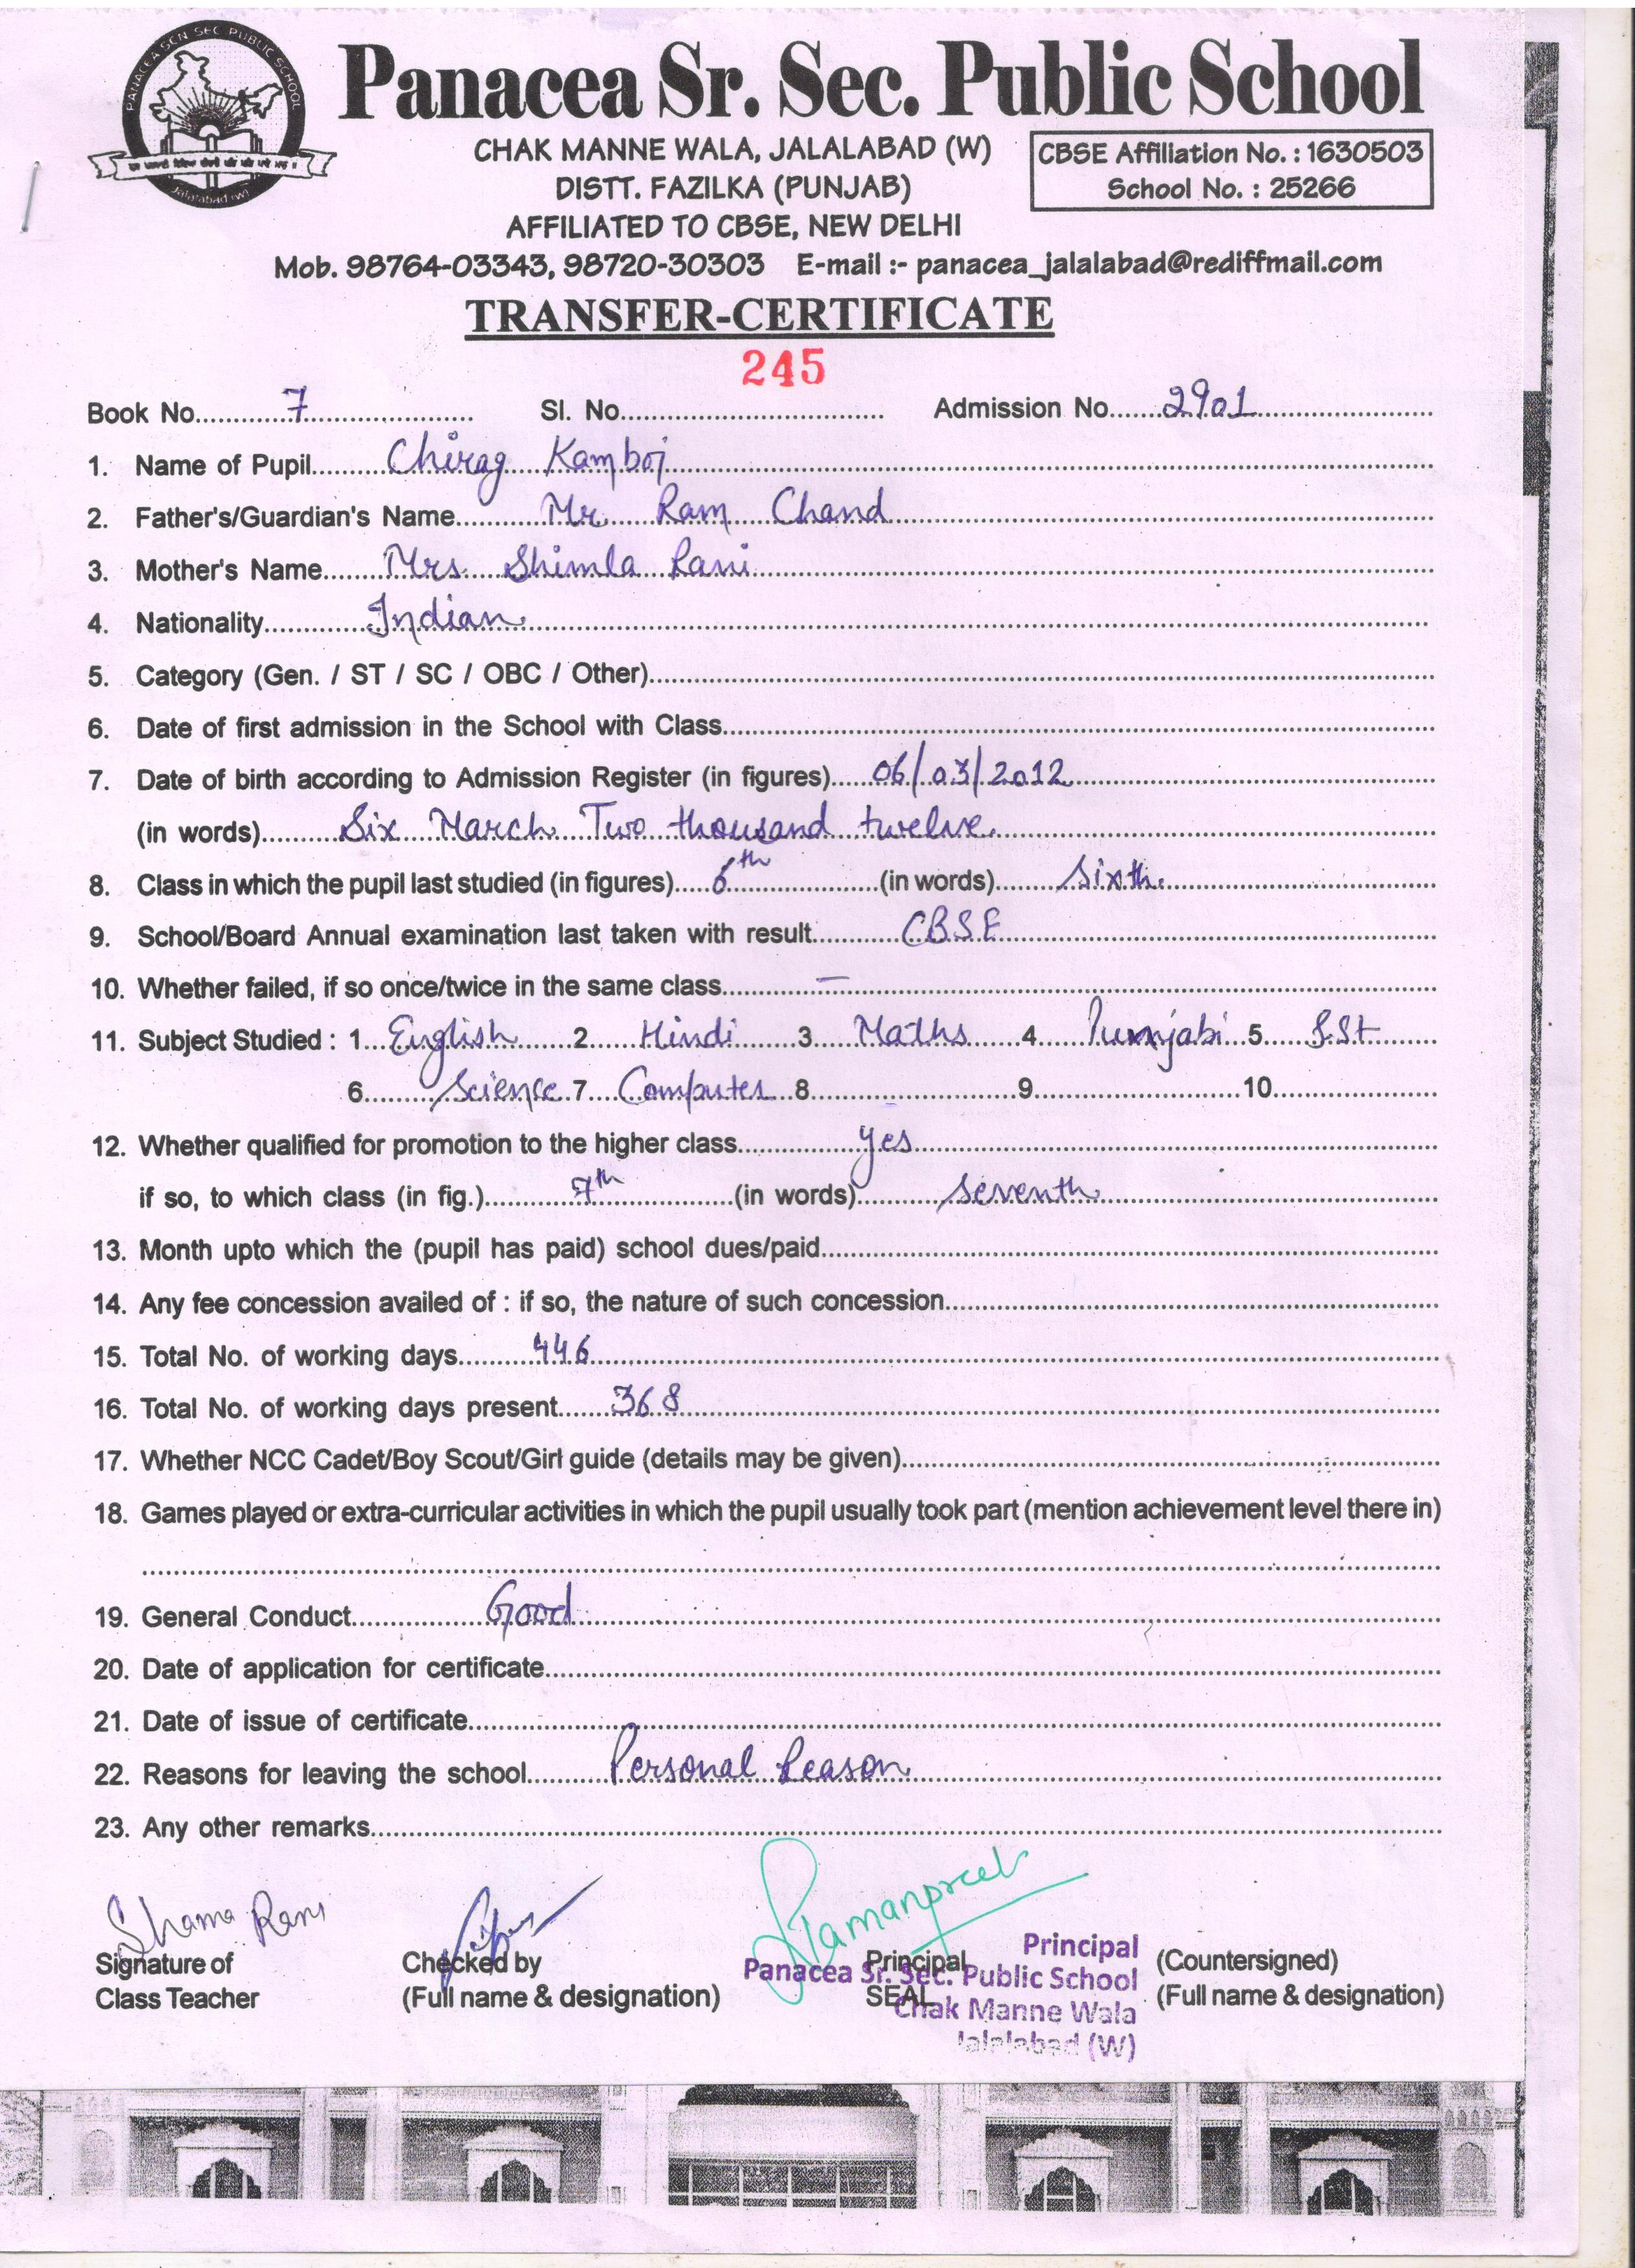 PANACEA SCN SEC PUBLIC SCHOOL
Jalalabad (W)
Panacea Sr. Sec. Public School
CHAK MANNE WALA, JALALABAD (W)
DISTT. FAZILKA (PUNJAB)
AFFILIATED TO CBSE, NEW DELHI
CBSE Affiliation No. : 1630503
School No. : 25266
Mob. 98764-03343, 98720-30303 E-mail :- panacea_jalalabad@rediffmail.com
TRANSFER-CERTIFICATE
245
Book No. 7 Sl. No. Admission No. 2901
1. Name of Pupil Chirag Kamboj
2. Father's/Guardian's Name Mr. Ram Chand
3. Mother's Name Mrs. Shimla Rani
4. Nationality Indian
5. Category (Gen. / ST / SC / OBC / Other)
6. Date of first admission in the School with Class
7. Date of birth according to Admission Register (in figures) 06/03/2012
(in words) Six March Two thousand twelve.
8. Class in which the pupil last studied (in figures) 6th (in words) Sixth.
9. School/Board Annual examination last taken with result CBSE
10. Whether failed, if so once/twice in the same class —
11. Subject Studied : 1 English 2 Hindi 3 Maths 4 Punjabi 5 S.St
6 Science 7 Computer 8 9 10
12. Whether qualified for promotion to the higher class yes
if so, to which class (in fig.) 7th (in words) seventh
13. Month upto which the (pupil has paid) school dues/paid
14. Any fee concession availed of : if so, the nature of such concession
15. Total No. of working days 446
16. Total No. of working days present 368
17. Whether NCC Cadet/Boy Scout/Girl guide (details may be given)
18. Games played or extra-curricular activities in which the pupil usually took part (mention achievement level there in)
19. General Conduct Good
20. Date of application for certificate
21. Date of issue of certificate
22. Reasons for leaving the school Personal Reason
23. Any other remarks
Shama Rani
Signature of
Class Teacher
Checked by
(Full name & designation)
Ramanpreet
Principal
SEAL
Principal
Panacea Sr. Sec. Public School
Chak Manne Wala
Jalalabad (W)
(Countersigned)
(Full name & designation)